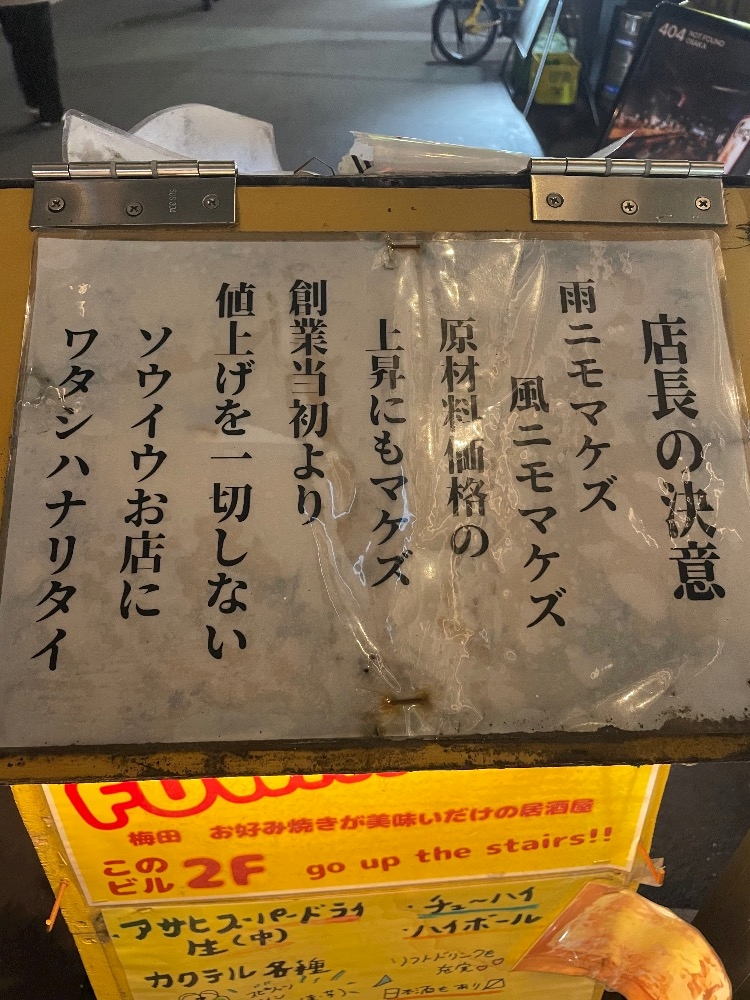 404 NOT FOUND
OSAKA
店長の決意
雨ニモマケズ
風ニモマケズ
原材料価格の
上昇にもマケズ
創業当初より
値上げを一切しない
ソウイウお店に
ワタシハナリタイ
梅田 お好み焼きが美味いだけの居酒屋
この
ビル
2F go up the stairs!!
・アサヒスーパードライ
生(中)
カクテル各種
・チューハイ
・ハイボール
ソフトドリンクも
充実♡♡
日本酒もあり〼